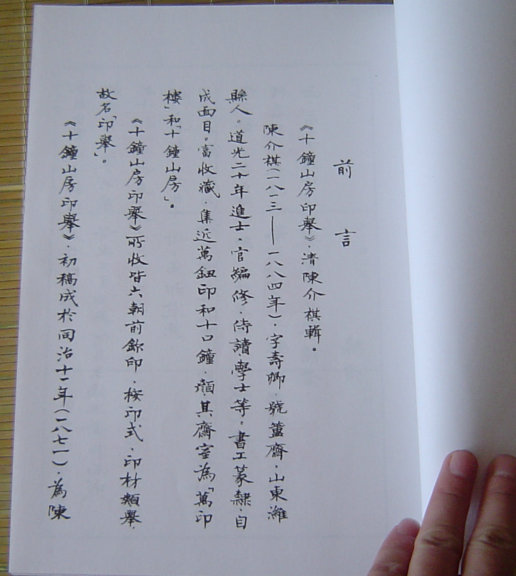 前言
《十鐘山房印舉》，清陳介祺輯。
陳介祺（一八一三——一八八四年），字壽卿，號簠齋，山東濰
縣人。道光二十年進士，官編修、侍讀學士等。書工篆隸，自
成面目。富收藏，集近萬鈕印和十口鐘，顏其齋室為「萬印
樓」和「十鐘山房」。
《十鐘山房印舉》所收皆六朝前鉨印，按印式、印材類舉，
故名「印舉」。
《十鐘山房印舉》，初稿成於同治十一年（一八七一），為陳